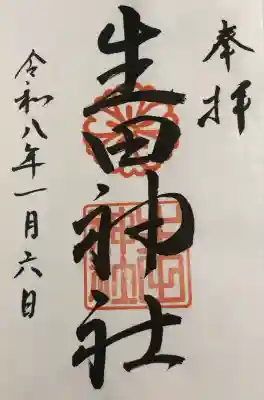 奉拝
生田神社
令和八年一月六日